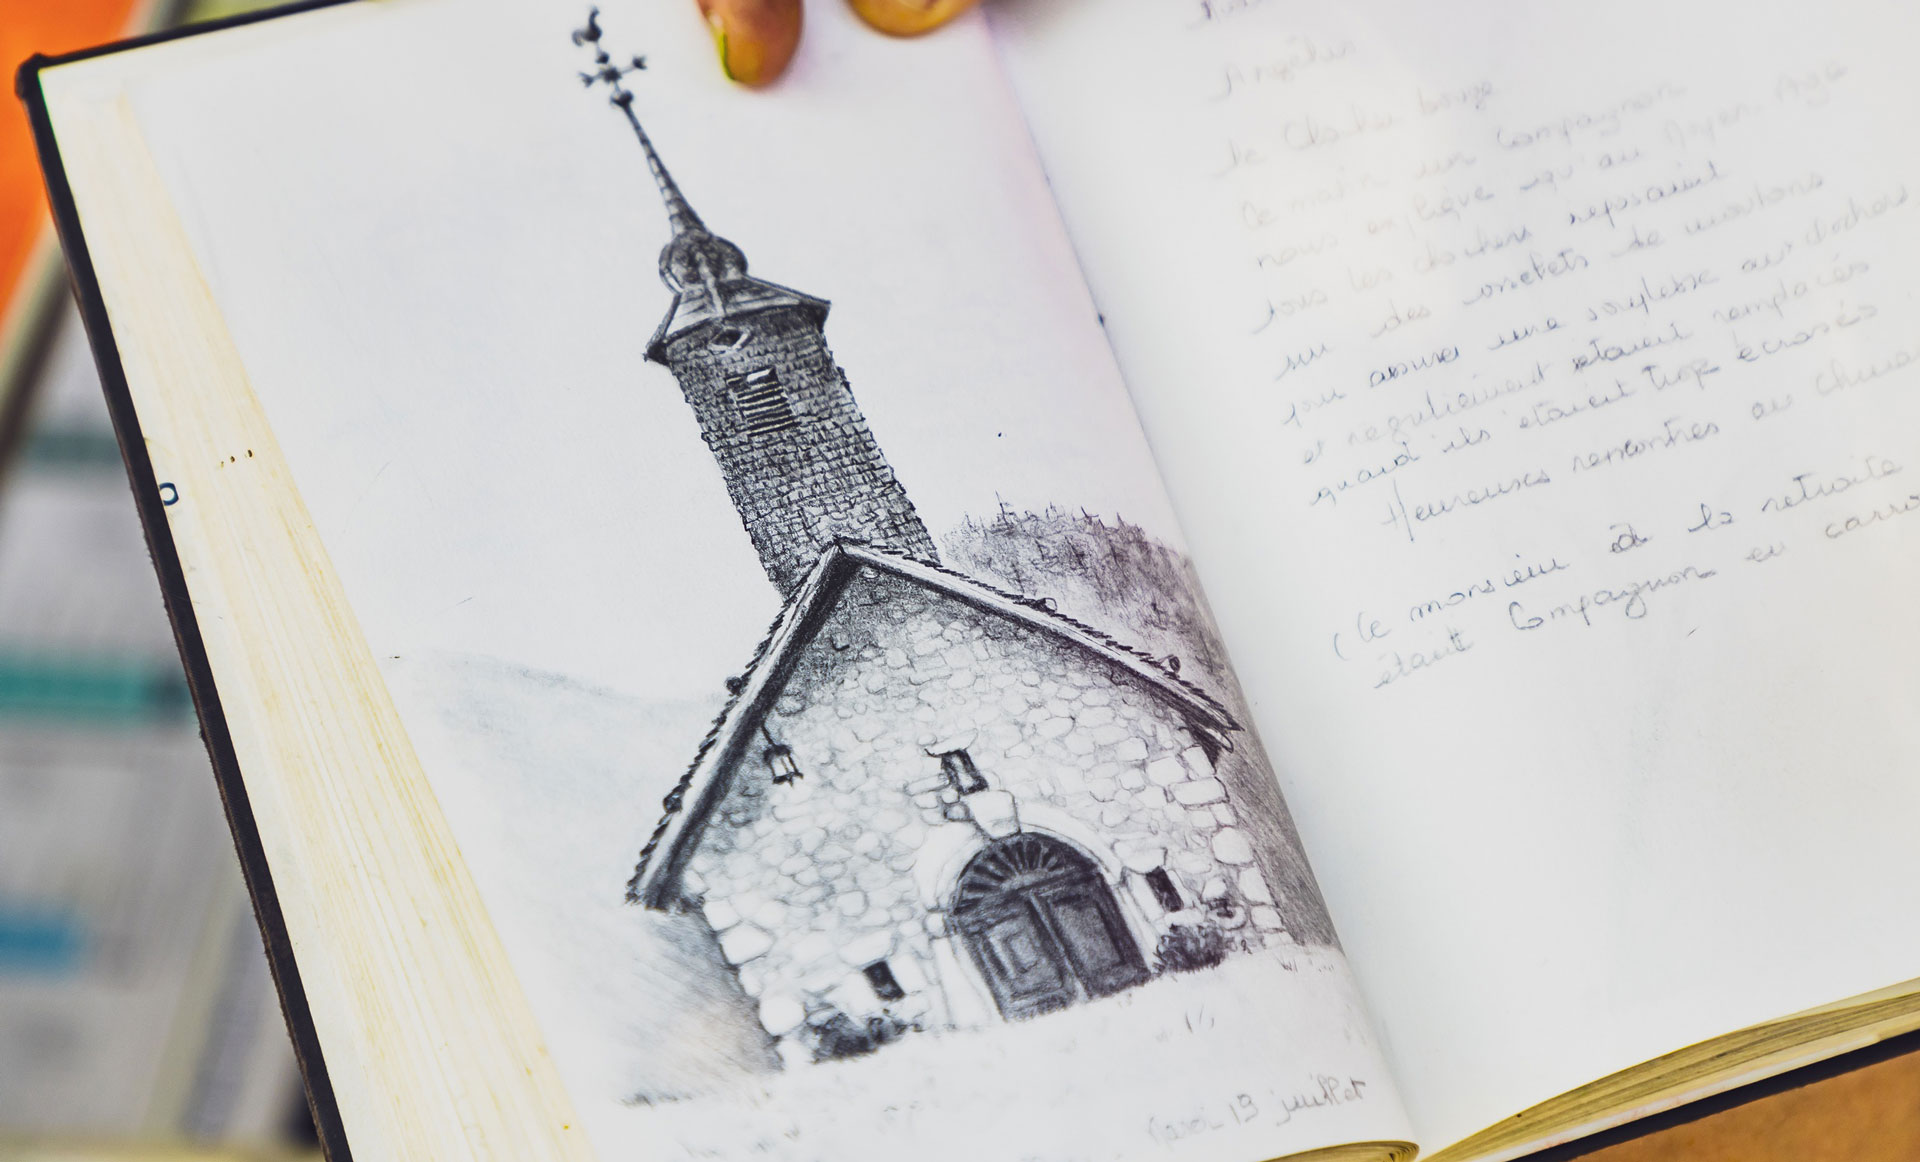 Angélus
le Clocher bouge
Ce matin un Compagnon
nous explique qu'au Moyen-Age
tous les clochers reposaient
sur des osselets de moutons
pour assurer une souplesse aux clochers
et régulièrement étaient remplacés
quand ils étaient trop écrasés
Heureuses rencontres au
(Ce monsieur à la retraite
était Compagnon en
13 juillet